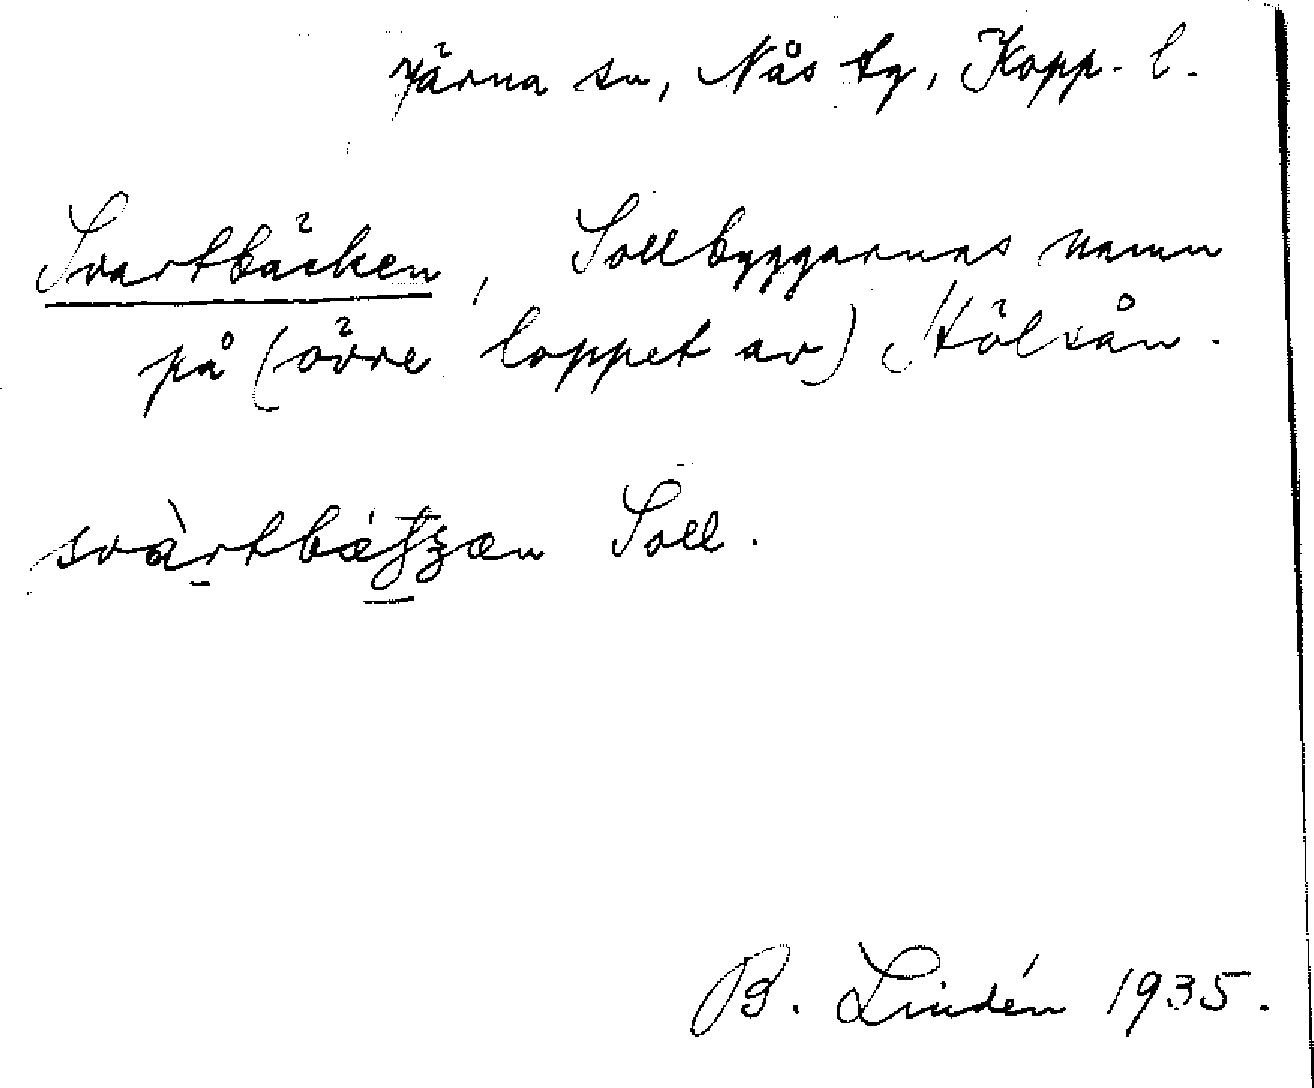 Järna sn, Nås tg, Kopp. l.
Svartbäcken, Sollbyggarnas namn
på (övre loppet av) Hölsån.
Soll.
B. Lindén 1935.